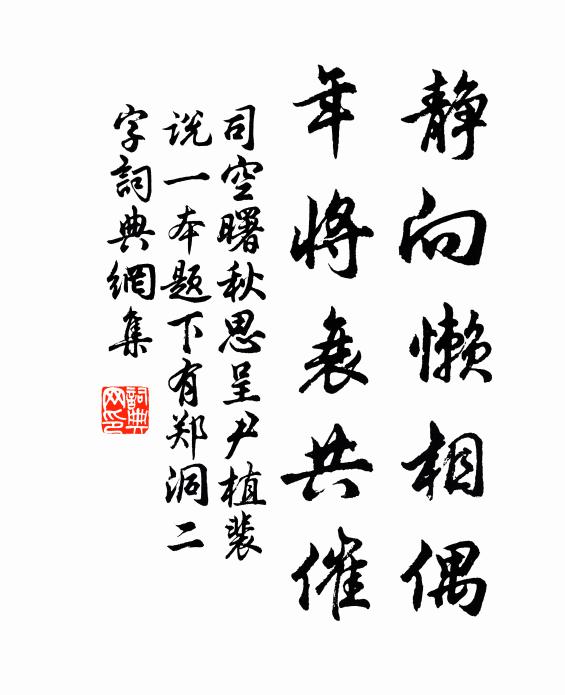 静向懒相偶
年将衰共催
司空曙秋思呈尹植裴
说一本题下有郑洞二
字詞典網集
詞典网印